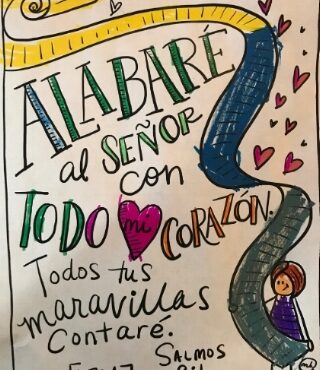 ALABARÉ
al SEÑOR
con
TODO mi CORAZÓN.
Todos tus
maravillas
Contaré.
SALMOS